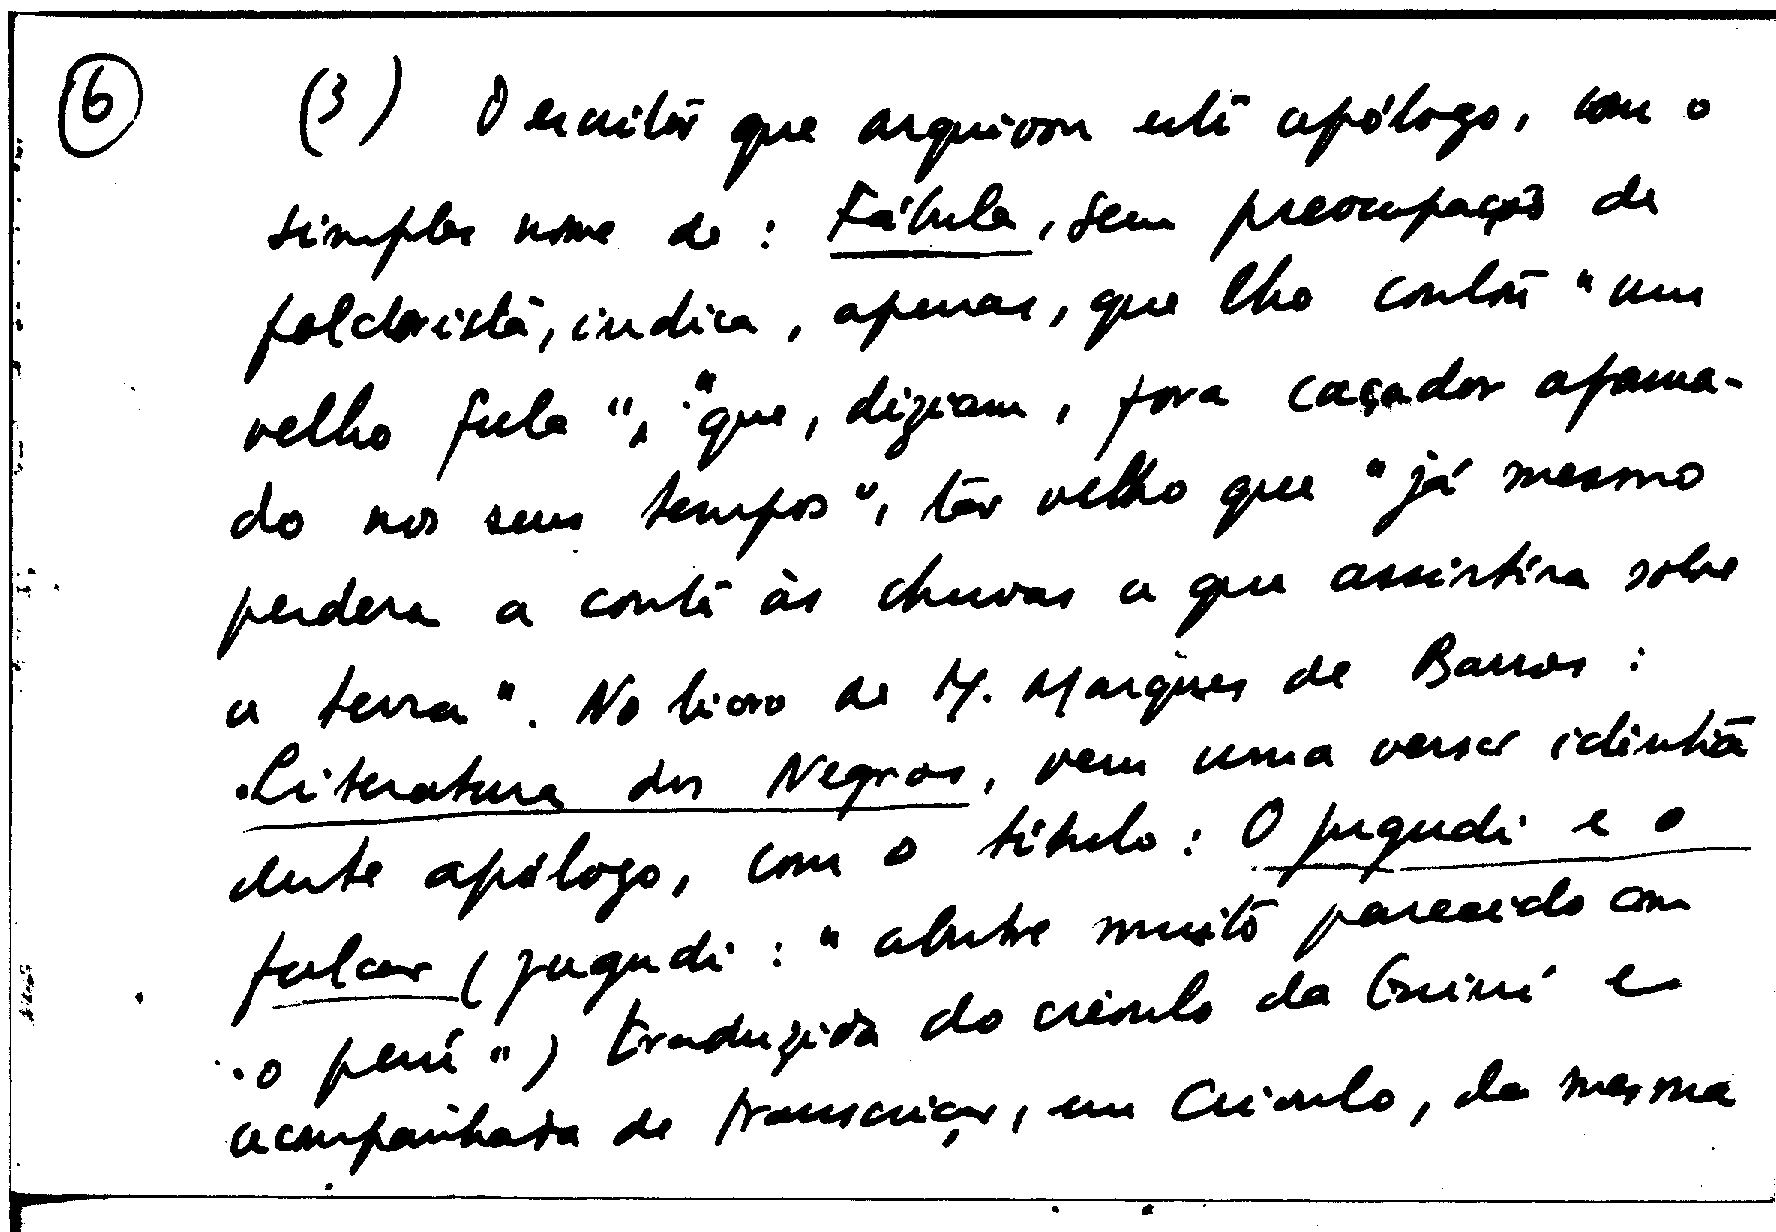 6
(3) O escritor que arquivou este apólogo, com o
simples nome de : Fábula, sem preocupação de
folclorista, indica, apenas, que lho contou "um
velho fula", "que, diziam, fora caçador afama-
do nos seus tempos", tão velho que "já mesmo
perdera a conta às chuvas a que assistira sobre
a terra". No livro de M. Marques de Barros :
Literatura dos Negros, vem uma versão idêntica
deste apólogo, com o título : O jugudi e o
falcão (jugudi : "abutre muito parecido com
o perú") traduzida do crioulo da Guiné e
acompanhada de transcrição, em Crioulo, da mesma